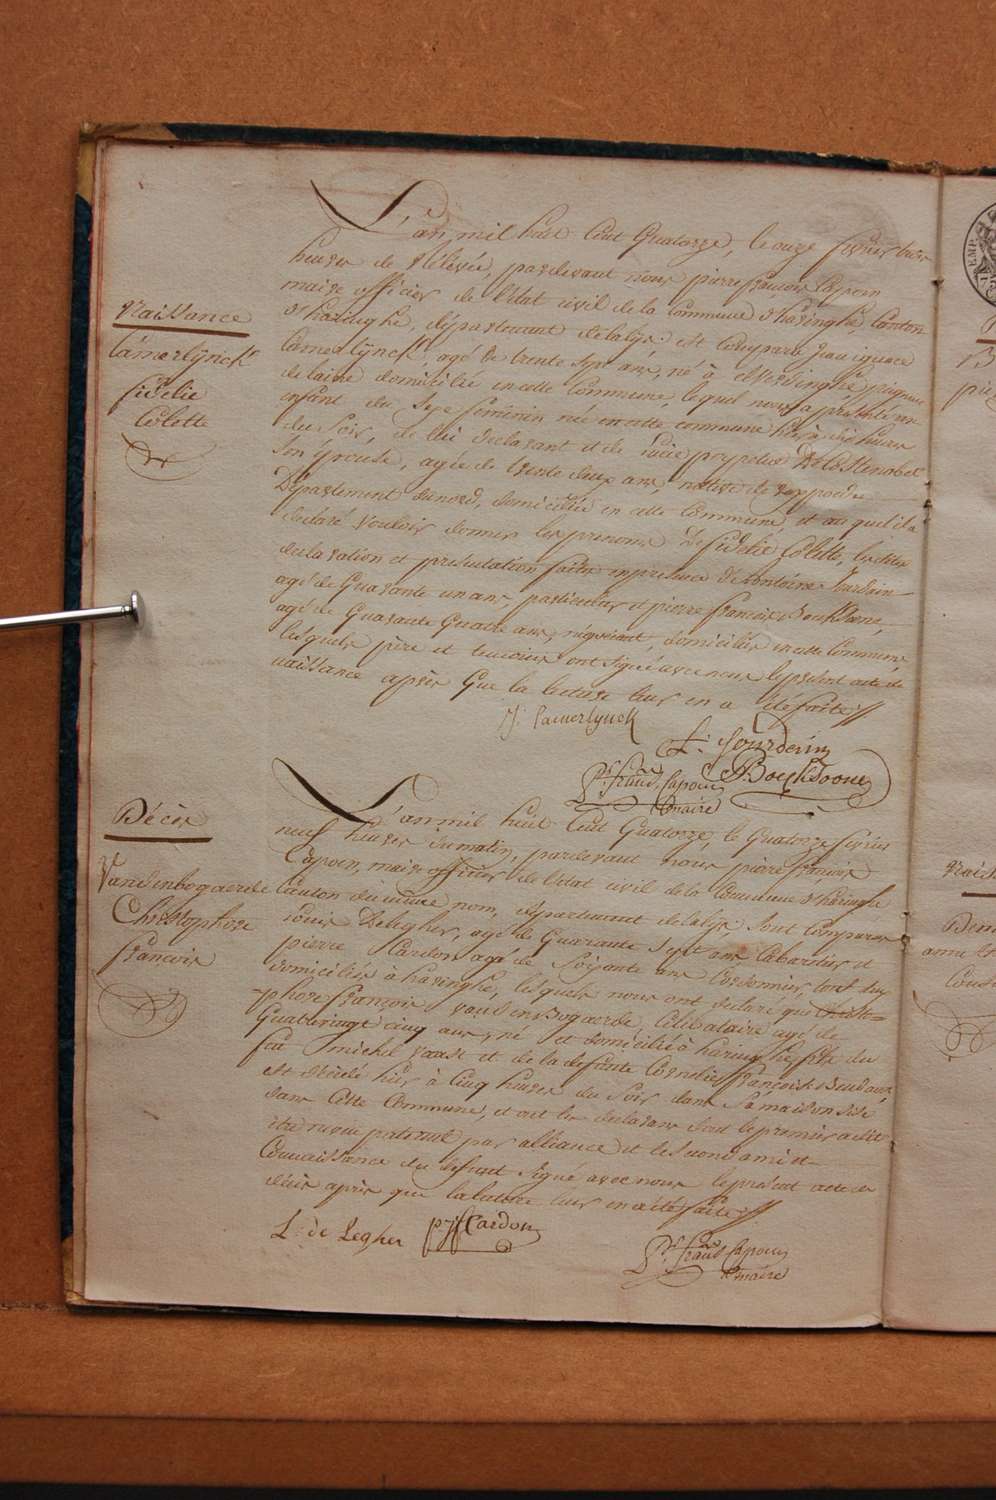 L'an mil huit Cent Quatorze, le onze fevrier trois
heures de Rélévée, pardevant nous pierre francois Capoen
maire officier de l'Etat civil de la Commune d'haringhe Canton
d'haringhe, départment delalijs est Comparu Jean ignace
Camerlijnck, agé de trente sept ans, né à peigneur
de laine domicilié en cette Commune, lequel nous a presenté un
enfant du sexe feminin née en cette commune hier à dix heures
du Soir, de lui declarant et de
Son épouse, agée de trente deux ans, native de rexpoede
Département dunord, domiciliée en cette Commune, et auquel il a
declaré vouloir donner les prenoms De fidelie Colette, lesdites
declaration et présentation faites en presence De antoine Jourdain
agé de Quarante un ans, particulier et pierre francois Boucksoone,
agé de Quarante Quatre ans, négociant, domiciliés en cette Commune,
lesquels père et temoins ont signé avec nous le présent acte de
naissance après Que la lecture leur en a été faite
Naissance
Camerlijnck
fidelie
Colette
J: Camerlynck
A: Jourdain
P Boucksoone
Pr. franc Capoen
maire
Décès
Vandenbogaerde
Christophore
francois
L'an mil huit Cent Quatorze, le Quatorze fevrier
neuf heures du matin, pardevant nous pierre francois
Capoen, maire officier de l'Etat civil de la Commune d'haringhe
Canton du même nom, département delalijs Sont Comparus
Louis Delegher, agé de Quarante Sept ans Cabaretier et
pierre Cardon agé de Soixante ans Cordonnier, tous deux
domiciliés à haringhe, lesquels nous ont declaré que Christ=
=phore françois vandenbogaerde, Célibataire agé de
Quatrevingt cinq ans, né et domicilié à haringhe, fils du
feu michel vaast et de la defunte Cornelie françoise
est décédé hier à Cinq heures du Soir dans Sa maison sise
dans Cette Commune, et ont les declarans dont le premier a dit
être paternel par alliance et le second ami et
Connaissance du defunt Signé avec nous le présent acte de
décès après que la lecture leur en a été faite
L: de Legher
p: j Cardon
Pr. franc Capoen
maire
EMP